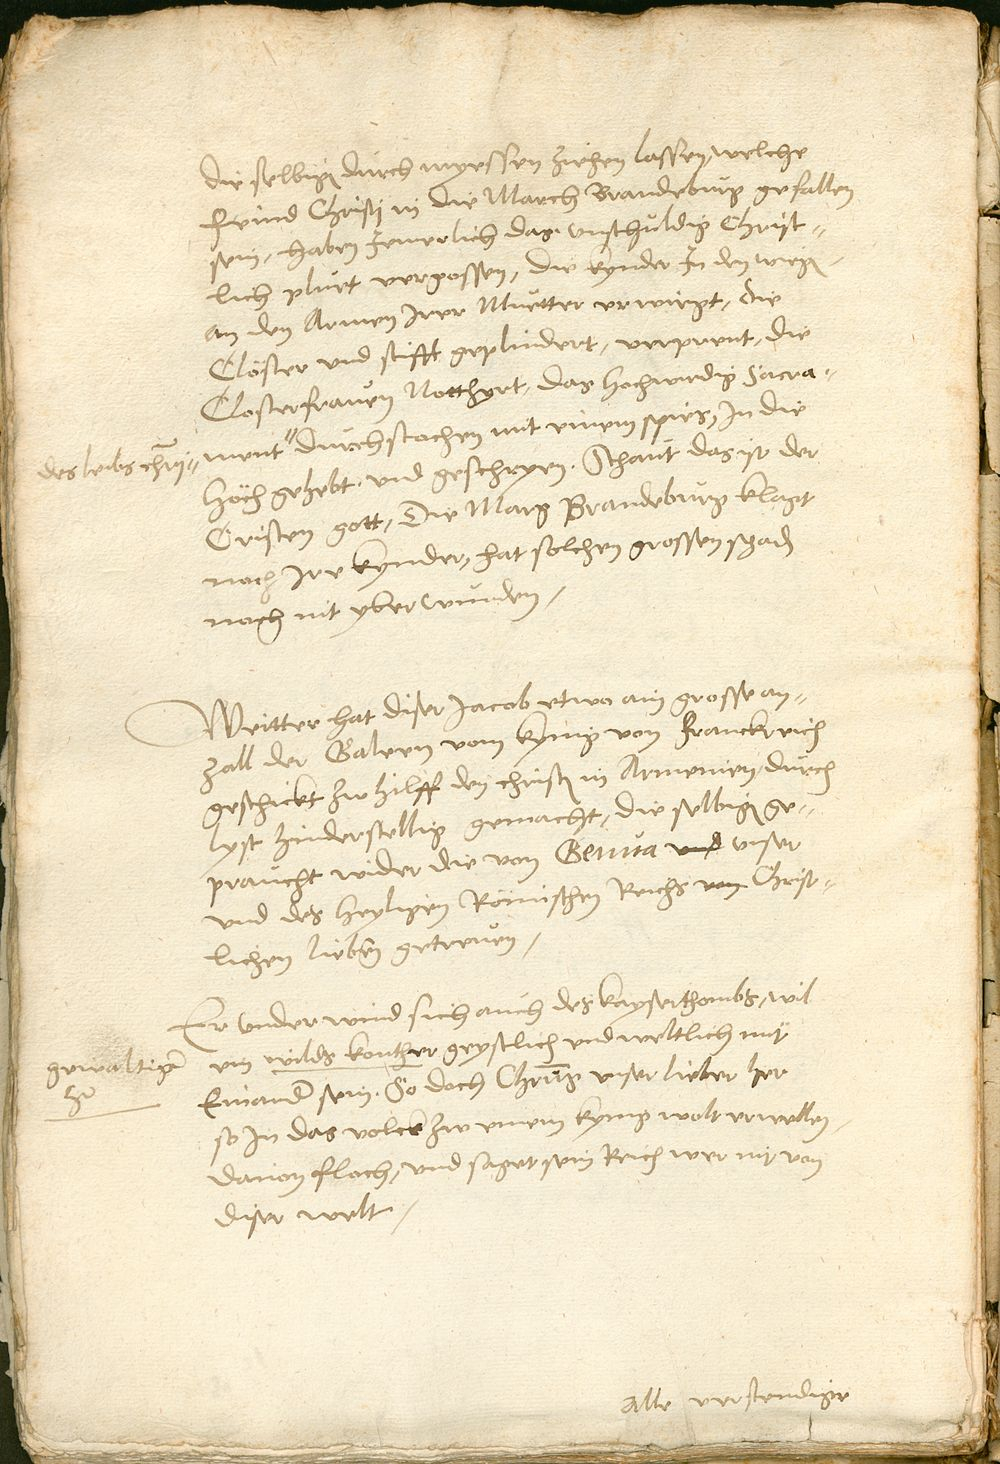 die selbigen durch myessen ziehen lassen, welche
feind Christi in die March Brandeburg gefallen
sein, haben Jemerlich das unschuldig Christ-
lich pluet vergossen, die kynder In den wiegen
an den Armen Irer Muetter erwirgt, die
Clöster und stifft geplindert, verprent, die
Closterfrauen Notthzert, das hochwirdig Sacra-
des leibs christi
ment durchstochen mit einem spies, In die
höch gehebt, und geschryen. Schaut das ist der
Cristen gott, Die Marg Brandeburg klagt
noch Ire kynder, hat solchen grossen schaden
noch nit yberwunden,
Weitter hat diser Jacob etwo ain grosse an-
zall der Galeen vom kynig von Franckreich
geschickt zw hilff den christen in Armenien, durch
lyst hinderstellig gemacht, die selbigen ge-
praucht wider die von Genua und unser
und des heyligen Römischen Reichs von Christ-
lichen lieben getreuen,
Er underwind sich auch des kayserthombs, wil
gewaltiger
ein wilds konther geystlich und weltlich mit
herr
Einander sein. So doch Christus unser lieber her
so In das volck zw einem kynig wolt erwellen,
davon floch, und saget sein Reich wer nit von
diser welt,
Alle verstendige